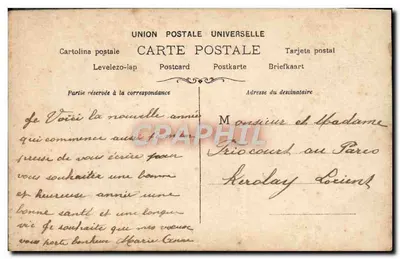 UNION POSTALE UNIVERSELLE
Cartolina postale CARTE POSTALE Tarjeta postal
Levelezo-lap Postcard Postkarte Briefkaart
Partie réservée à la correspondance
Je Voici la nouvelle année
qui commence aussi je m'em
presse de vous écrire pour
vous souhaiter une bonne
et heureuse année une
bonne santé et une longue
vie Je souhaite que mes vœux
vous porte bonheur Marie
Adresse du destinataire
Monsieur et Madame
Friocourt au Parco
Kerolay Lorient
CPAPHIL